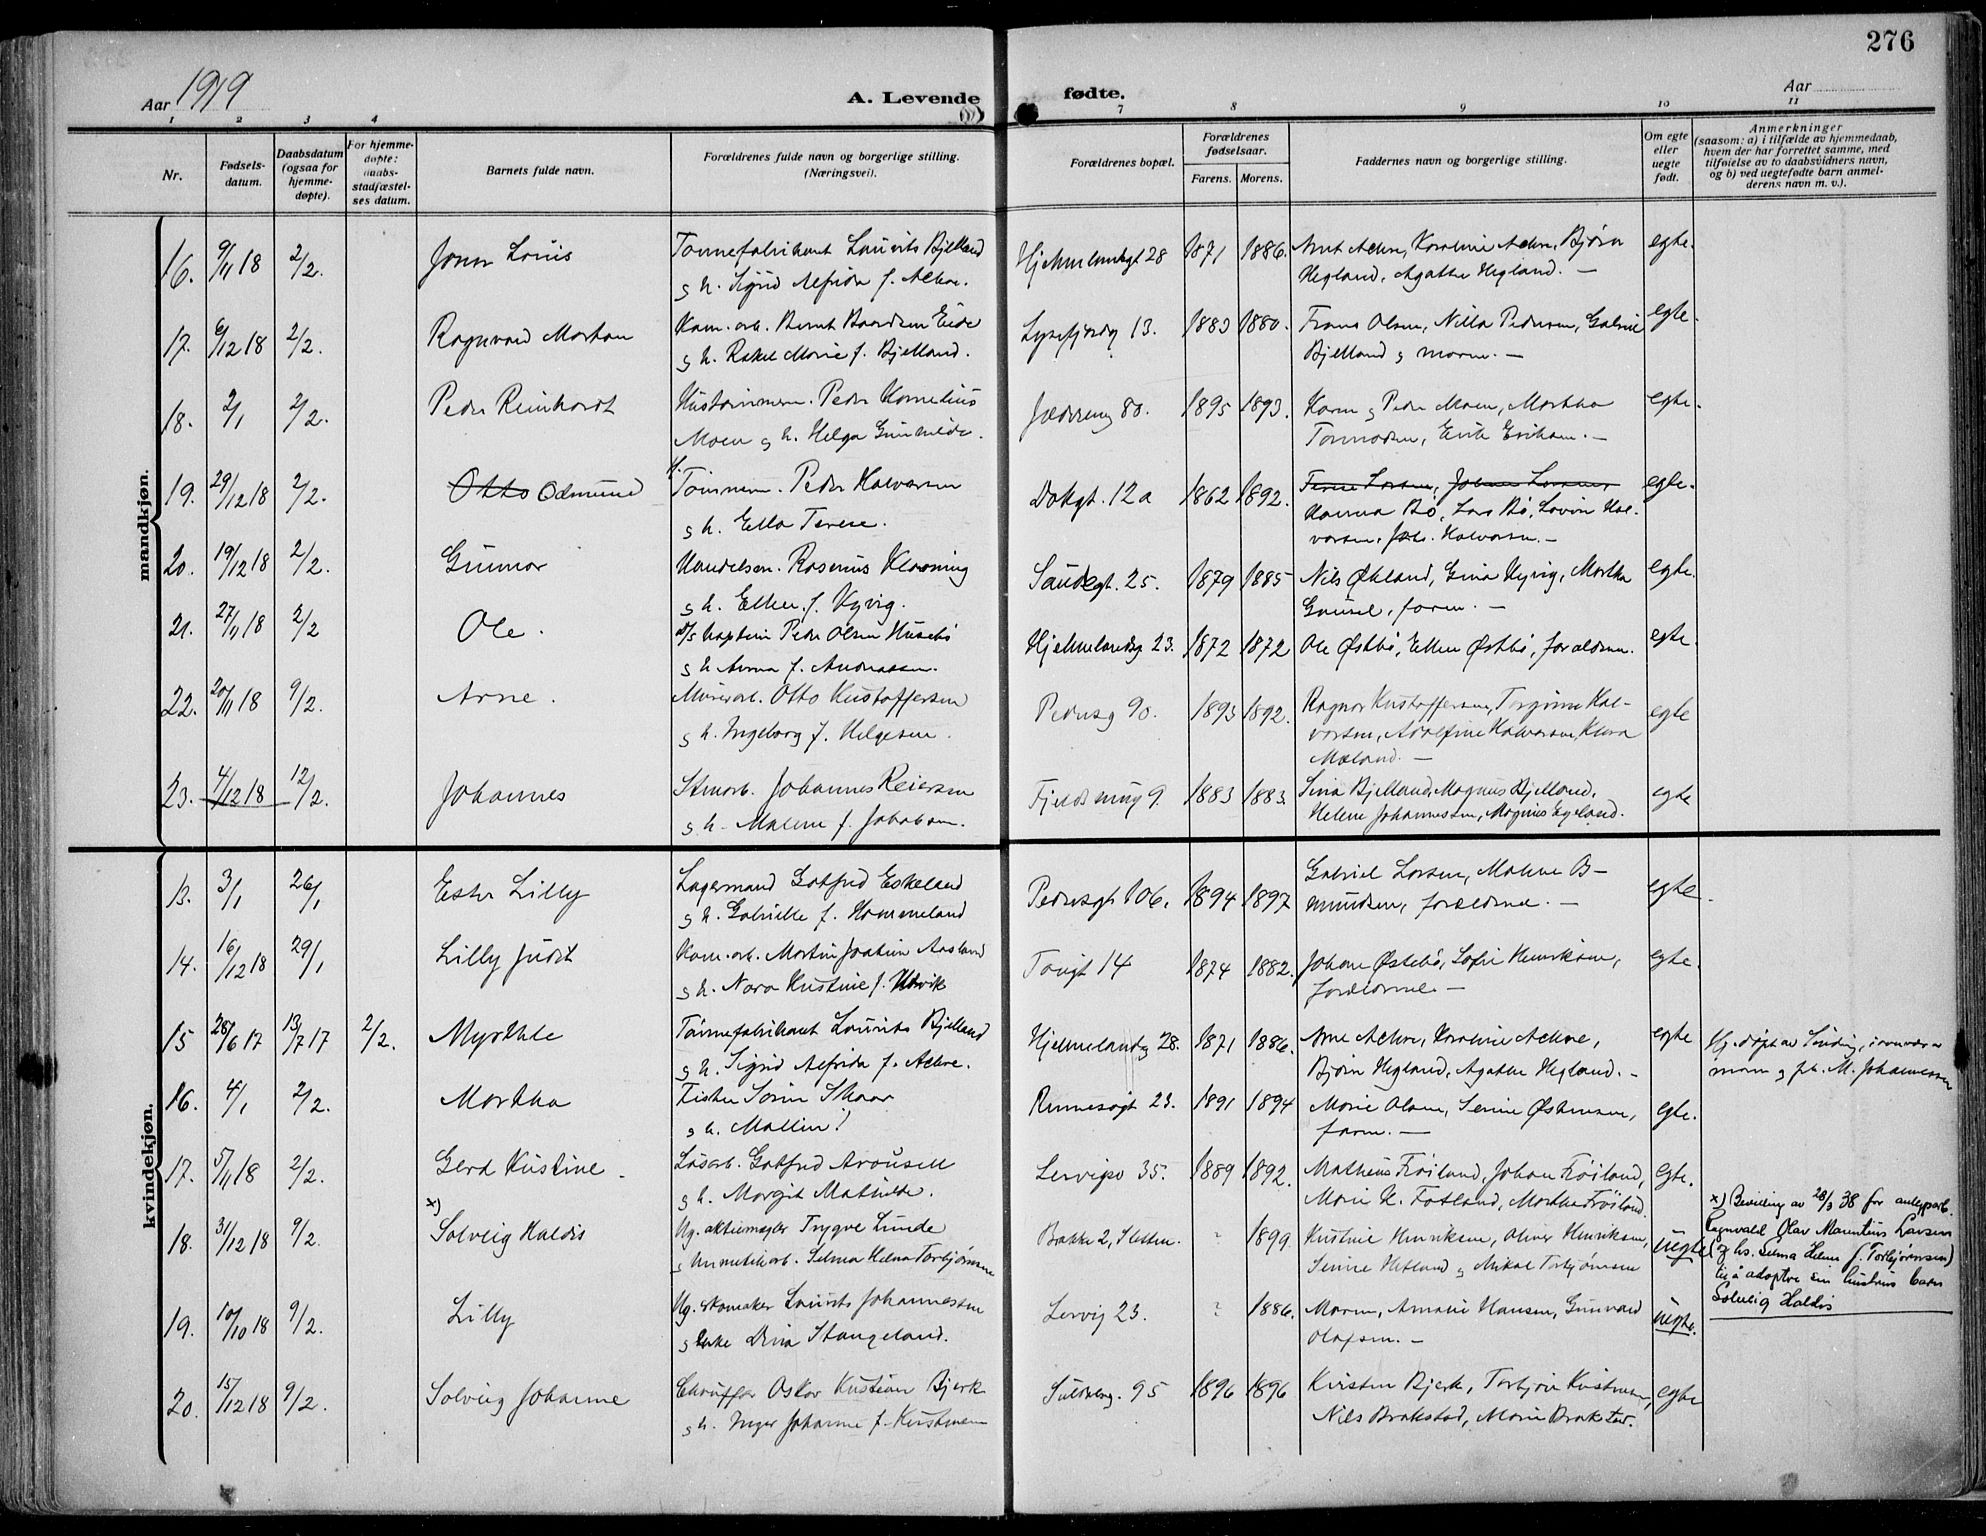 276
Aar 1919
A. Levende fødte.
Aar
1 2 3 4 7 8 9 10 11
Nr.
Fødsels-
datum.
Daabsdatum
(ogsaa for
hjemme-
døpte).
For hjemme-
døpte:
daabs-
stadfæstel-
ses datum.
Barnets fulde navn.
Forældrenes fulde navn og borgerlige stilling.
(Næringsvei).
Forældrenes bopæl.
Forældrenes
fødselsaar.
Farens. Morens.
Faddernes navn og borgerlige stilling.
Om egte
eller
uegte
født.
Anmerkninger
(saasom: a) i tilfælde av hjemmedaab,
hvem der har forrettet samme, med
tilføielse av to daabsvidners navn,
og b) ved uegtefødte barn anmel-
derens navn m. v.).
mandkjøn.
16. 9/11 18 2/2. Louis Tønnefabrikant Laurits Bjelland Hjelmelandsgt 28 1871 1886. Karoline Bjørn egte.
g h. Sigrid Alfrida f. Hegland, Agathe Hegland. —
17. 6/12 18 2/2. Ragnvald Kom. arb. Bernt Baardsen Eide Lysefjordg 13. 1883 1880. Frans Olsen, Nilla Pedersen, Gabriel egte.
g h. Rakel Marie f. Bjelland. Bjelland g moren. —
18. 2/1 2/2. Peder Reinhardt Peder Kornelius Jædereng 80. 1895 1893. Karen g Peder Moen, Martha egte.
Moen g h. Helga Gunhilde. Tønnesen, Erik Eriksen. —
19. 29/12 18 2/2. Otto Odmund Tømmerm. Peder Halvorsen Dokgt. 12a 1862 1892. egte.
g h. Ella Terese. Hanna Bø, Lars Bø, Lovise Hal-
vorsen, Joh. Halvorsen. —
20. 19/12 18 2/2. Gunnar Handelsm. Rasmus Klovning Saudegt. 25. 1879 1885 Nils Økland, Gina Vyvig, Martha egte.
g h. Ellen f. Vyvig. Gausel, faren. —
21. 27/11 18 2/2 Ole. D/S kaptein Peder Olsen Husebø Hjelmelandsg 23. 1872 1872 Ole Østbø, Ellen Østbø, forældrene. egte
g h Anna f. Andreassen.
22. 20/11 18 9/2. Arne. Murerarb. Otto Kristoffersen Pedersg 90. 1893 1892. Ragnar Kristoffersen, Torgrine Hal- egte
g h. Ingeborg f. Helgesen. vorsen, Adolfine Halvorsen, Klara
Mæland. —
23. 4/12 18 12/2. Johannes Stenarb. Johannes Reiersen 9. 1883 1883. Sina Bjelland, Magnus Bjelland, egte
g h. Malene f. Jakobsen. Helene Johannessen, Magnus Egeland.
kvindekjøn.
13. 3/1 26/1 Ester Lilly Lagermand Gotfred Eskeland Pedersgt 106. 1894 1897 Gabriel Larsen, Malene B- egte.
g h. Gabrielle f. Hommeland mundsen, forældrene. —
14. 16/12 18 29/1 Lilly Judit Kom. arb. Martin Joakim Aasland Taugt 14 1874 1882. Johan Østebø, Sofie Henriksen, egte.
g h. Nora Kristine f. forældrene. —
15 28/6 17 13/7 17 2/2. Myrthle Tønnefabrikant Laurits Bjelland Hjelmelandsg 28. 1871 1886. Karoline egte Hj. døpt av Sinding, i nærvær av
g h. Sigrid Alfrida f. Bjørn Hegland, Agathe Hegland. — moren g M. Johannessen
16. 4/1 2/2. Martha Fisker Søren Skaar Rennesøgt 23. 1891 1894 Marie Olsen, Serine Østensen, egte.
g h. Mallin? faren. —
17. 5/11 18 2/2 Gerd Kristine. Løsarb. Gotfred Arousell Lervigsv 35. 1889 1892. Matheus Frøiland, Johan Frøiland, egte.
g h. Margit Mathilde. Marie K. Fotland, Martha Frøiland.
18. 31/12 18 9/2. x) Solveig Haldis Ug. Trygve Lunde Bakke 2, . ? 1899. Kristine Henriksen, Oliver Henriksen, uegte
g Hermetikarb. Selma Helene Torbjørnsen Serine Hetland g Mikal Torbjørnsen
x) Bevilling av 28/3 38 for anlegsarb.
Ragnvald Olav Mauritius Larsen
og hs. Selma Helene f. Torbjørnsen)
til å adoptere sin hustrus barn
Solveig Haldis
19. 10/10 18 9/2. Lilly Ug. skomaker Laurits Johannessen Lervig 23. ? 1886. Moren, Amalie Hansen, Gunvald uegte.
g Enke Dina Stangeland. Olafsen. —
20. 15/12 18 9/2. Solveig Johanne Chauffør Oskar Kristian Bjerk Suldalsg. 95 1896 1896 Kirsten Bjerk, Torbjørn Kristensen, egte
g h. Inger Johanne f. Kristensen Nils Brakstad, Marie Brakstad.